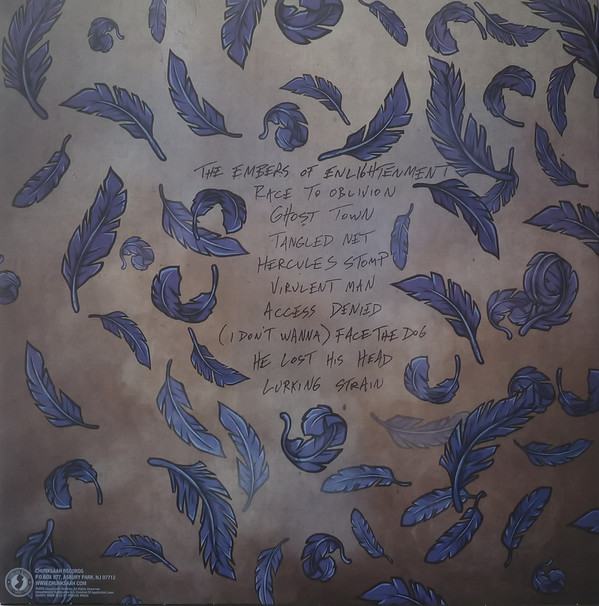 THE EMBERS OF ENLIGHTENMENT
RACE TO OBLIVION
GHOST TOWN
TANGLED NET
HERCULES STOMP
VIRULENT MAN
ACCESS DENIED
(I DON'T WANNA) FACE THE DOG
HE LOST HIS HEAD
LURKING STRAIN
CHUNKSAAH RECORDS
P.O. BOX 977, ASBURY PARK, NJ 07712
WWW.CHUNKSAAH.COM